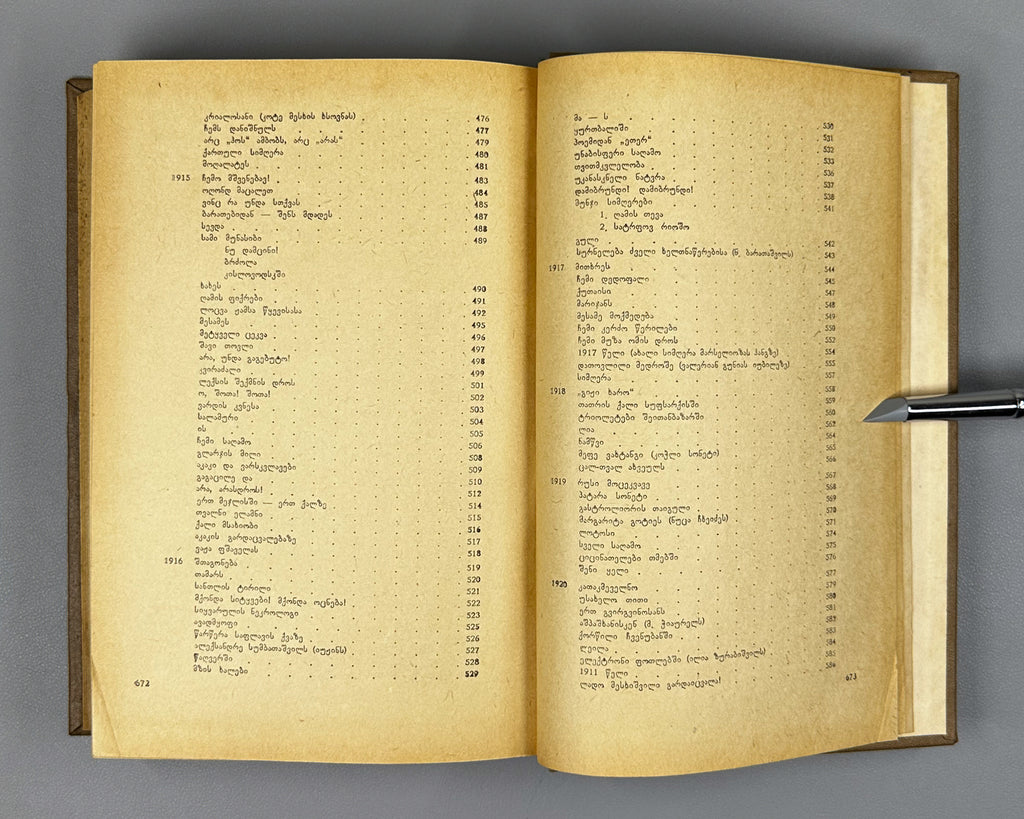 კრიალოსანი (კოტე მესხის ხსოვნას) . 476
ჩემს დანიშნულს 477
არც „ჰოს“ ამბობს, არც „არას“ 479
ქართული სიმღერა 480
მოღალატეს 481
1915 ჩემო მშვენებავ! 483
ოღონდ მაცალეთ 484
ვინც რა უნდა სთქვას 485
ბარათებიდან — შენს მდადეს 487
სევდა 488
სამი მუნასიბი 489
ნუ დამცინი!
ბრძოლა
კისლოვოდსკში
ხახეს 490
ღამის ფიქრები 491
ლოცვა ჟამსა წყევისასა 492
მესამეს 495
მეტყველი ცეკვა 496
შავი თოვლი 497
არა, უნდა გაგებუტო! 498
კვირაძალი 499
ლექსის შექმნის დროს 501
ო, შოთა! შოთა! 502
ვარდის კვნესა 503
სალამური 504
ის 505
ჩემი საღამო 506
გლარჯის მილი 508
აკაკი და ვარსკვლავები 509
გაგაცილე და 510
არა, არასდროს! 512
ერთ მეჯლისში — ერთ ქალზე 514
თვალნი ელამნი 515
ქალი მსახიობი 516
აკაკის გარდაცვალებაზე 517
ვაჟა ფშაველას 518
1916 შთაგონება 519
თამარს 520
სანთლის ტირილი 521
მქონდა სიტყვები! მქონდა ოცნება! 522
სიყვარულის ნეკროლოგი 523
ავადმყოფი 525
წარწერა საფლავის ქვაზე 526
ალექსანდრე სუმბათაშვილს (იუჟინს) 527
წაღვერში 528
მზის ხალები 529
672
მა — ს 530
ყურთბალიში 531
პოემიდან „ეთერ“ 532
უნაბისფერი საღამო 533
თვითმკვლელობა 536
უკანასკნელი ნატვრა 537
დამიბრუნდი! დამიბრუნდი! 538
მუნჯი სიმღერები 541
1. ღამის თევა
2. სატრფოვ რიოშო
გული 542
სურნელება ძველი ხელთნაწერებისა (ნ. ბარათაშვილს) 543
1917 მითხრეს 544
ჩემი დედოფალი 545
ქუთაისი 547
მარიჯანს 548
მესამე მოქმედება 549
ჩემი კერძო წერილები 550
ჩემი მუზა ომის დროს 552
1917 წელი (ახალი სიმღერა მარსელიოზას ჰანგზე) 554
დათოვლილი მედროშე (ვალერიან გუნიას იუბილეზე) 555
სიმღერა 557
1918 „გიჟი ხარო“ 558
თათრის ქალი სუფსარქისში 559
ტრიოლეტები შეითანბაზარში 560
ლია 562
ნამწვი 564
მეფე ვახტანგი (კოჭლი სონეტი) 565
ცალ-თვალ ახვეულს 566
1919 რუსი მოცეკვავე 567
პატარა სონეტი 568
გასტროლიორის თაიგული 569
მარგარიტა გოტიეს (ნუცა ჩხეიძეს) 570
ლოტოსი 571
სველი საღამო 574
ციცინათელები თმებში 575
შენი ყელი 576
1920 კათაკმეველნო 577
უსახელო თითი 579
ერთ გვირგვინოსანს 580
აშპაშხანისკენ (მ. ჭიაურელს) 581
ქორწილი ჩვენუბანში 582
ლეილა 583
ელექტრონი ფოთლებში (ილია ზურაბიშვილს) 584
1911 წელი 585
ლადო მესხიშვილი გარდაიცვალა! 586
673